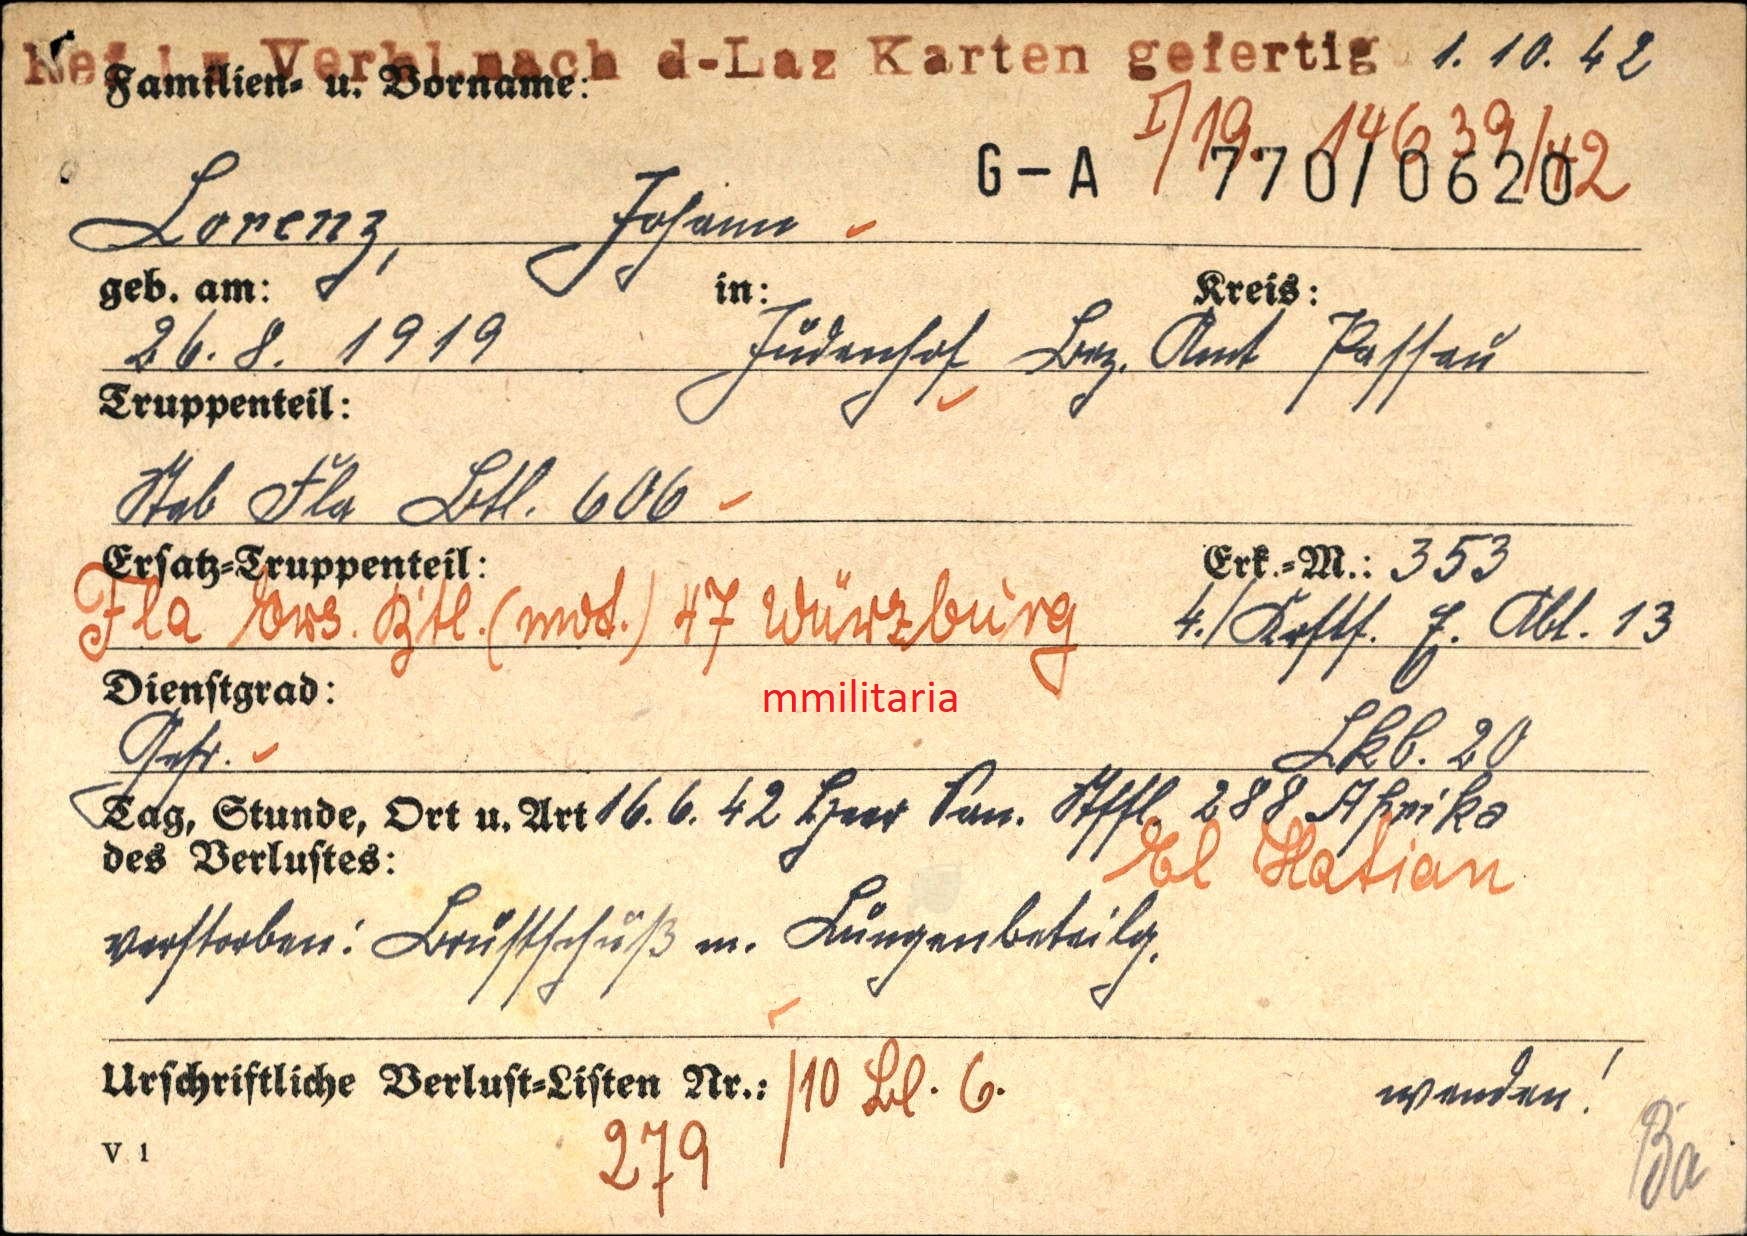 Verbl. nach d-Laz Karten gefertig 1. 10. 42
Familien- u. Vorname:
I/19. 14639/42
G-A 770/0620
Lorenz, Johann
geb. am: in: Kreis:
26. 8. 1919 Judenhof Bez. Amt Passau
Truppenteil:
Stab Fla Btl. 606
Ersatz-Truppenteil: Erk.-M.: 353
Fla Ers. Btl. (mot.) 47 Würzburg 4./Krftf. E. Abt. 13
Dienstgrad:
Gefr. Lkb. 20
mmilitaria
Tag, Stunde, Ort u. Art 16. 6. 42 Heer San. Stffl. 288 Afrika
des Verlustes: El Hatian
verstorben: Brustschuß m. Lungenbeteilg.
Urschriftliche Verlust-Listen Nr.: /10 Bl. 6.
wenden!
279
V 1
Ba